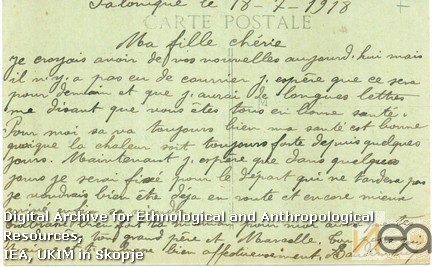 Salonique le 18-7-1918
CARTE POSTALE
Ma fille chérie
Je croyais avoir de vos nouvelles aujourd'hui mais
il n'y a pas eu de courrier j'espère que ce sera
pour demain et que j'aurai de longues lettres
me disant que vous êtes tous en bonne santé.
Pour moi sa va toujours bien ma santé est bonne
quoique la chaleur soit toujours forte depuis quelques
jours. Maintenant j'espère que dans quelques
jours je serai fixé pour le départ qui ne tardera pas
je voudrais bien être déja en route et encore mieux
bien fort ta pour moi
Digital Archive for Ethnological and Anthropological
Resources,
ton grand père et Marcelle.
IEA, UKIM in Skopje
bien affectueusement
iea